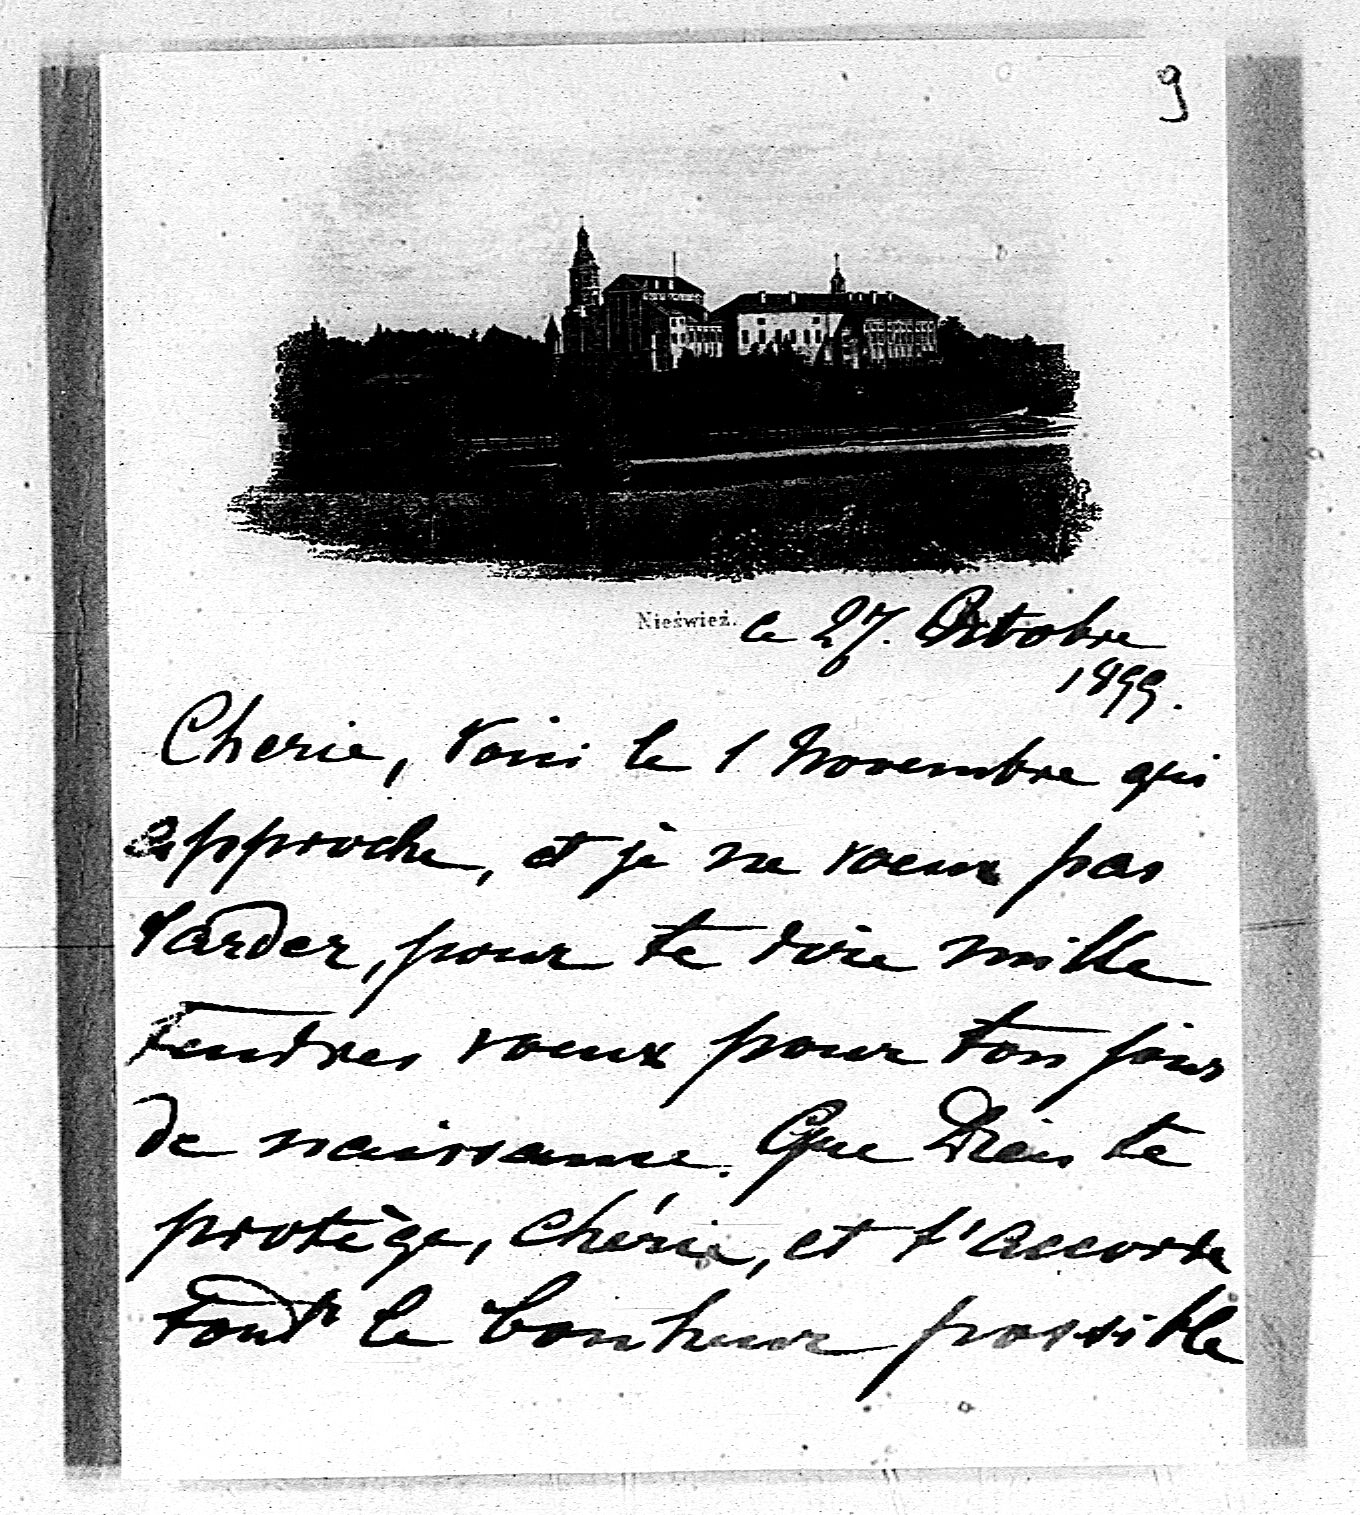 9
Nieśwież. le 27. Octobre
1899.
Cherie, voici le 1 Novembre qui
approche, et je ne voeux pas
tarder, pour te dire mille
tendres voeux pour ton jour
de naissance. Que Dieu te
protège, chérie, et t'accorde
tout le bonheur possible